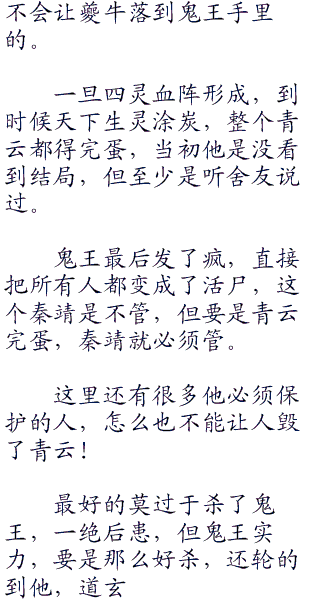 不会让夔牛落到鬼王手里
的。
一旦四灵血阵形成，到
时候天下生灵涂炭，整个青
云都得完蛋，当初他是没看
到结局，但至少是听舍友说
过。
鬼王最后发了疯，直接
把所有人都变成了活尸，这
个秦靖是不管，但要是青云
完蛋，秦靖就必须管。
这里还有很多他必须保
护的人，怎么也不能让人毁
了青云！
最好的莫过于杀了鬼
王，一绝后患，但鬼王实
力，要是那么好杀，还轮的
到他，道玄